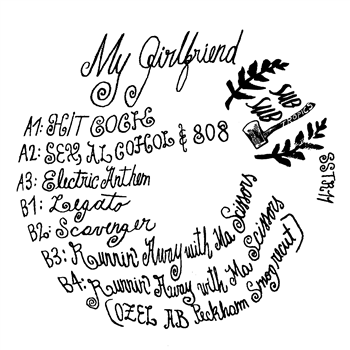 My Girlfriend
A1: HIT COCK
A2: SEX, ALCOHOL & 808
A3: Electric Anthem
B1: Legato
B2: Scavenger
B3: Runnin' Away with Ma Scissors
B4: Runnin' Away with Ma Scissors
(OZEL AB Peckham Smogyeaut)
TROPICS